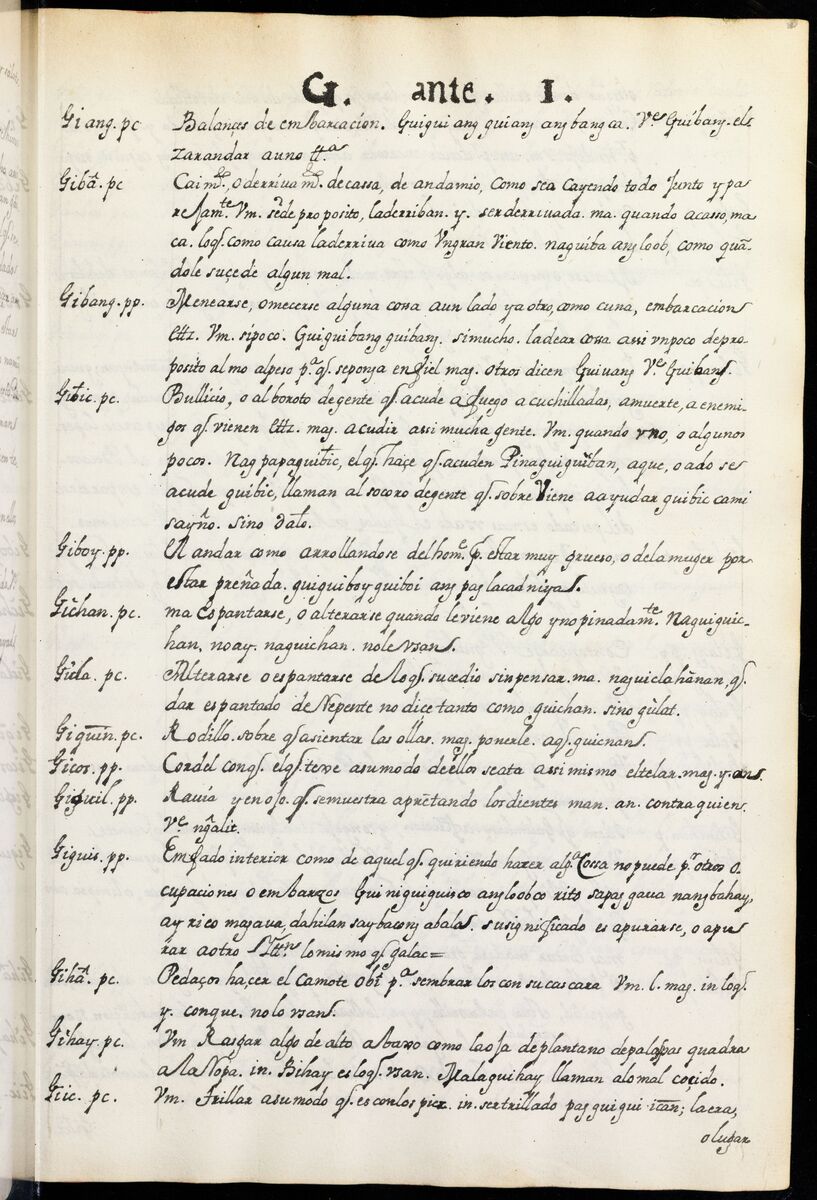 G. ante. I.
Giang. pc Balançes de embarcacion. Guigui ang guiang ang bangca. Ve Guibang. es
zarandar a uno tt.a
Gibā. pc Caim.to, o derrivam.to de cassa, de andamio, como sea cayendo todo Junto y pa
rejam.te Vm. se de proposito, la derriban. y. ser derruuada. ma. quando acasso, ma
ca. loq. como causa la derriva como Vn gran Viento. naguiba ang loob, como quā
dole suçede algun mal.
Gibang. pp. Menearse, o mecerse alguna cossa a un lado y a otro, como cuna, embarcacion
ettz. Vm. si poco. Guiguibang guibang. si mucho. ladear cossa assi vn poco de pro
posito al mo al peso p.a q. se ponga en fiel mag. otros dicen Guivang Ve Guibang.
Gibic. pc. Bullicio, o alboroto de gente q. acude a fuego a cuchilladas, a muerte, a enemi
gos q. vienen ettz. mag. acudir assi mucha gente. Vm. quando vno, o algunos
pocos. Nag papaguibic, el q. haçe q. acuden Pinaguiguiban, aque, o ado se
acude guibic, llaman al socoro de gente q. sobre Viene a ayudar guibic cami
sayño. sino dalo.
Giboy. pp. El andar como arrollandose del hom.e p. estar muy grueso, o de la muger por
estar preñada. guiguiboy guiboi ang paglacad niya.
Gichan. pc. ma espantarse, o alterarse quando le viene algo y no pinadam.te Naguiguic-
han, no ay. naguichan. no le vsan.
Gicla. pc. Alterarse o espantarse de lo q. sucedio sin pensar. ma. naguiclahānan, q.
dar espantado de Repente no dice tanto como guichan. sino gūlat.
Giquin. pc. Rodillo. sobre q. asientar las ollas. mag. ponerle. a q. guicnan.
Gicos. pp. Cordel con q. el q. texe a su modo de ellos se ata assi mismo el telar. mag. y. an.
Giguil. pp. Ravia y enojo. q. se muestra apretando los dientes man. an. contra quien.
Ve ngalit.
Giguis. pp. Enfado interior como de aquel q. quiriendo hazer alg.a Cossa no puede p.r otros o
cupaciones o embarzos Guiniguiguisco ang loob co rito sa pag gaua nang bahay,
ay rico magaua, dahilan saybacong abala. su significado es apurarse, o apu
rar a otro lo mismo q. galac=
Gihā. pc. Pedaços haçer el camote Obi p.a sembrar los con su cascara Vm. l. mag. in loq.
y. con que. no lo vsan.
Gihay. pc. Vm Rasgar algo de alto a baxo como la oja de plantano de palaspas quadra
a la Ropa. in. Bihay es lo q. vsan. Malaguihay llaman alo mal cocido.
Giic. pc. Vm. Trillar a su modo q. es con los piez. in. ser trillado pag guigui ican; la era,
o lugar